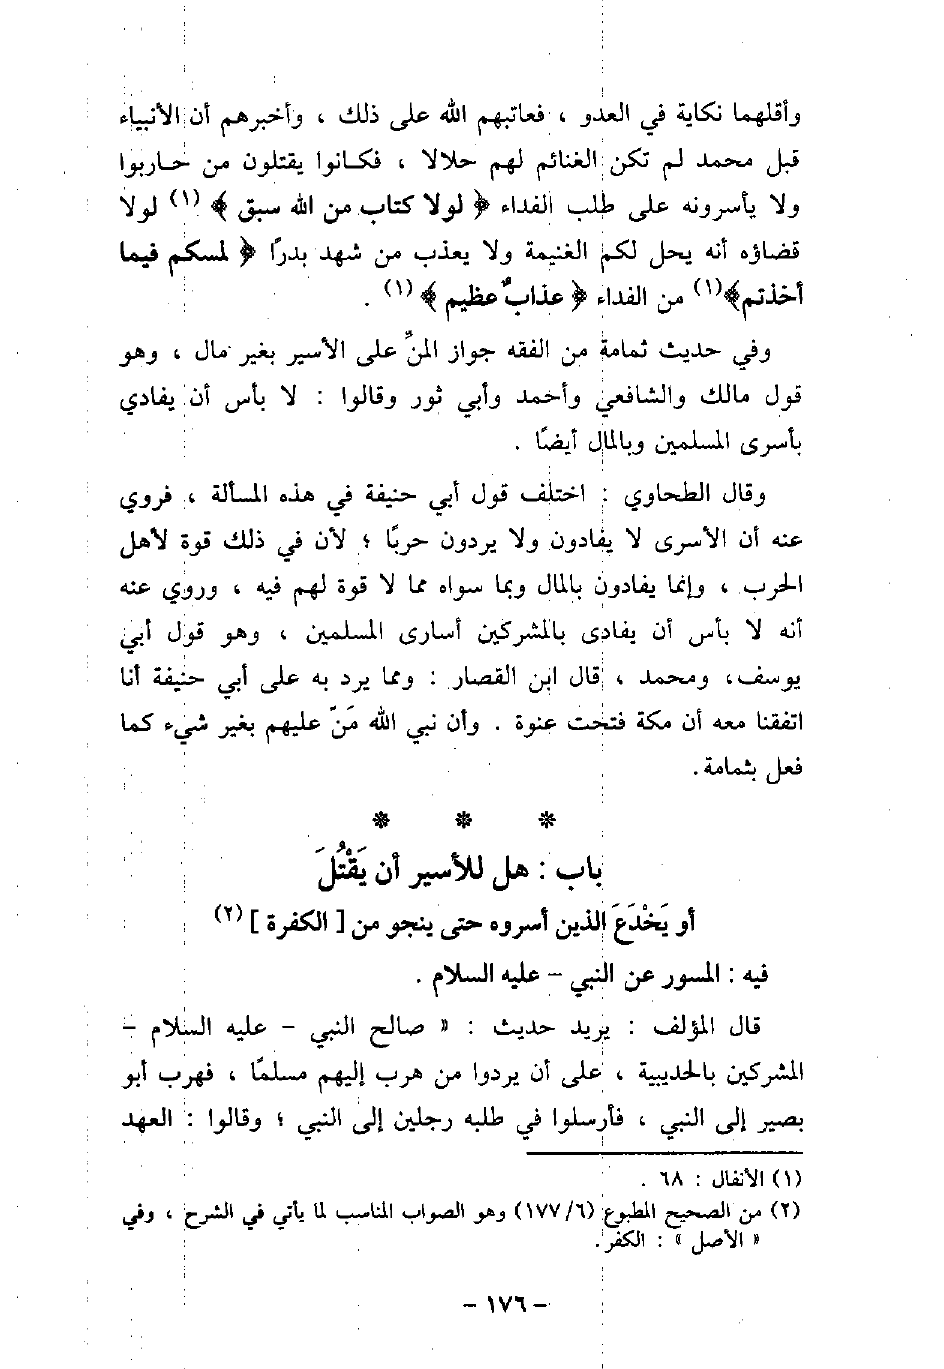 وأقلهما نكاية في العدو ، فعاتبهم الله على ذلك ، وأخبرهم أن الأنبياء
قبل محمد لم تكن الغنائم لهم حلالا ، فكانوا يقتلون من حاربوا
ولا يأسرونه على طلب الفداء ﴿ لولا كتاب من الله سبق ﴾ (١) لولا
قضاؤه أنه يحل لكم الغنيمة ولا يعذب من شهد بدرًا ﴿ لمسكم فيما
أخذتم﴾(١) من الفداء ﴿ عذابٌ عظيم ﴾ (١) .
وفي حديث ثمامة من الفقه جواز المنِّ على الأسير بغير مال ، وهو
قول مالك والشافعي وأحمد وأبي ثور وقالوا : لا بأس أن يفادي
بأسرى المسلمين وبالمال أيضًا .
وقال الطحاوي : اختلف قول أبي حنيفة في هذه المسألة ، فروي
عنه أن الأسرى لا يفادون ولا يردون حربًا ؛ لأن في ذلك قوة لأهل
الحرب ، وإنما يفادون بالمال وبما سواه مما لا قوة لهم فيه ، وروي عنه
أنه لا بأس أن يفادى بالمشركين أسارى المسلمين ، وهو قول أبي
يوسف، ومحمد ، قال ابن القصار : ومما يرد به على أبي حنيفة أنا
اتفقنا معه أن مكة فتحت عنوة . وأن نبي الله مَنّ عليهم بغير شيء كما
فعل بثمامة .
* * *
باب : هل للأسير أن يَقْتُلَ
أو يَخْدَعَ الذين أسروه حتى ينجو من [ الكفرة ] (٢)
فيه : المسور عن النبي – عليه السلام .
قال المؤلف : يريد حديث : « صالح النبي – عليه السلام –
المشركين بالحديبية ، على أن يردوا من هرب إليهم مسلمًا ، فهرب أبو
بصير إلى النبي ، فأرسلوا في طلبه رجلين إلى النبي ؛ وقالوا : العهد
(١) الأنفال : ٦٨ .
(٢) من الصحيح المطبوع (٦/ ١٧٧) وهو الصواب المناسب لما يأتي في الشرح ، وفي
« الأصل » : الكفر .
– ١٧٦ –